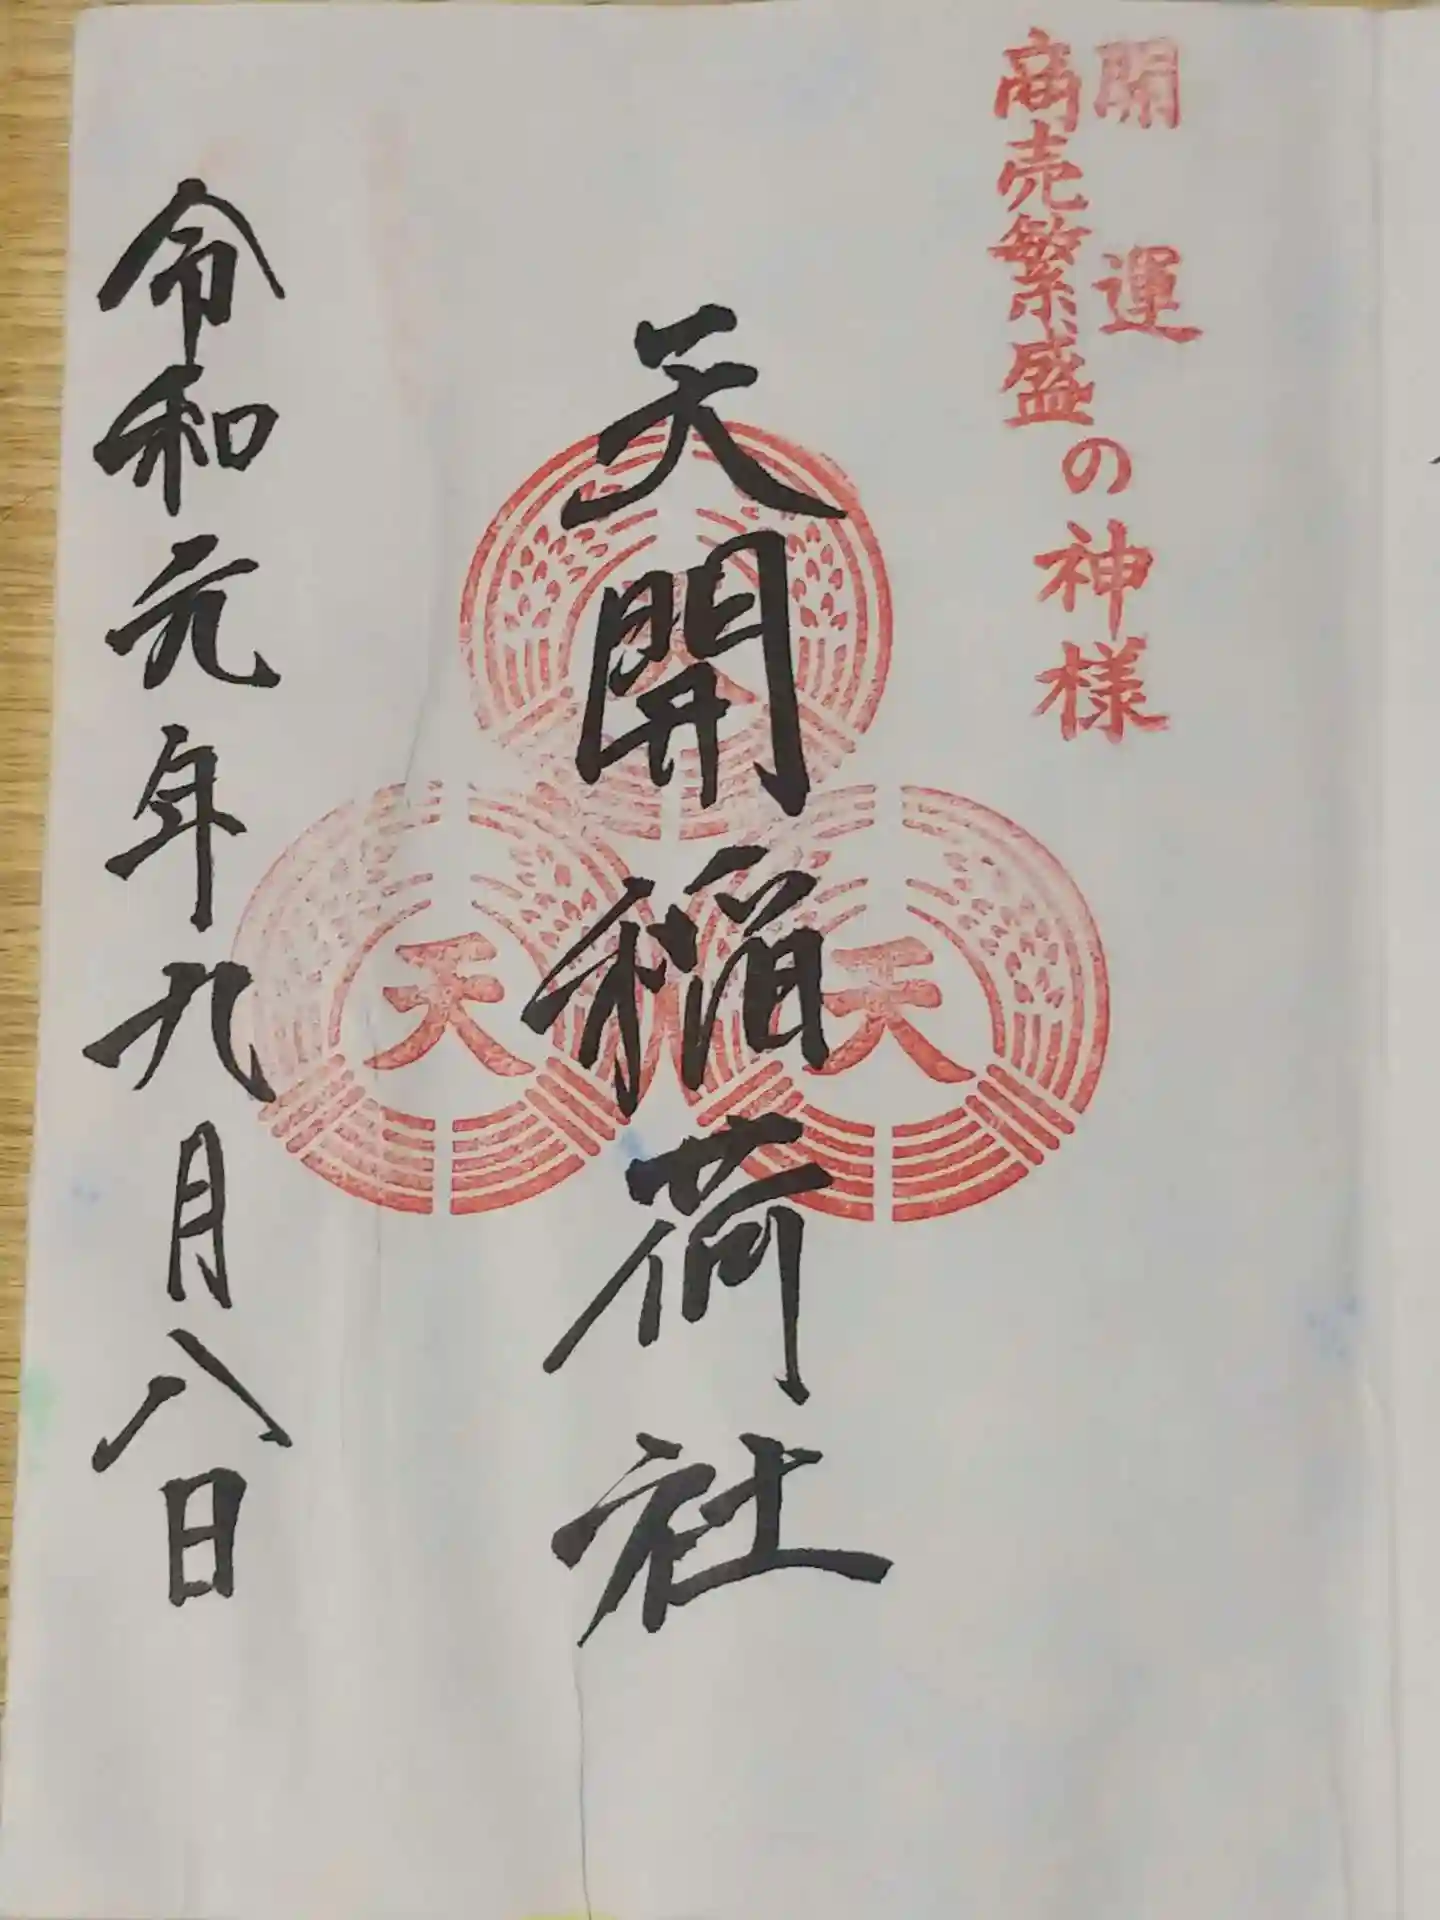 開運
商売繁盛
の神様
天開稲荷社
令和元年九月八日
天
天